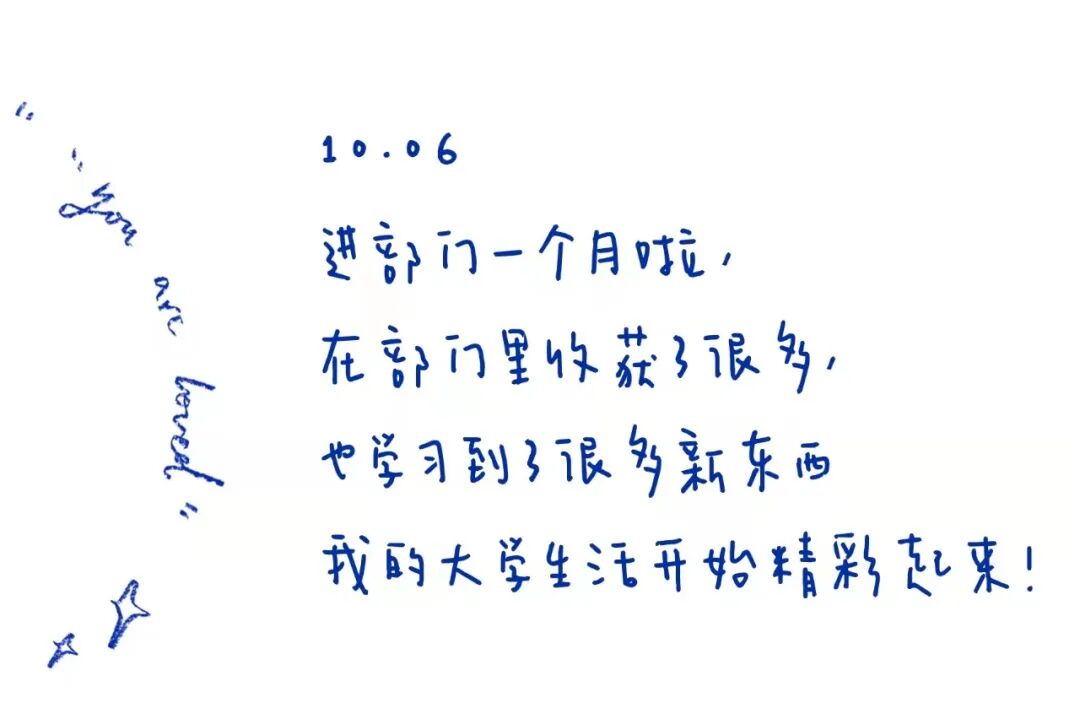 "
"you are loved"
10.06
进部门一个月啦，
在部门里收获了很多，
也学习到了很多新东西
我的大学生活开始精彩起来！